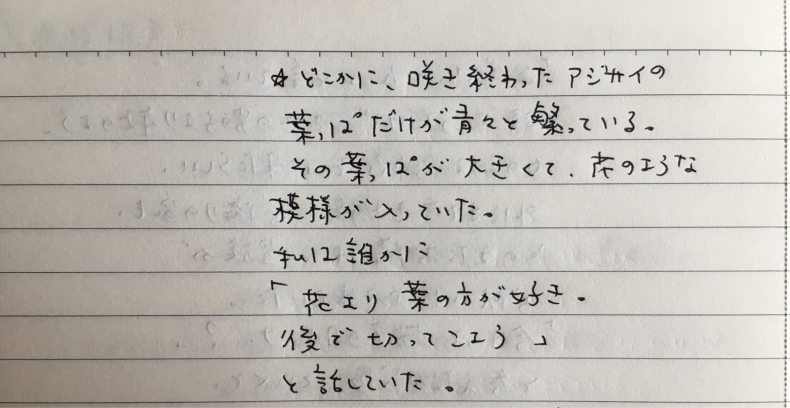 ☆どこかに、咲き終わったアジサイの
葉っぱだけが青々と繁っている。
その葉っぱが大きくて、花のような
模様が入っていた。
私は誰かに
「花より葉の方が好き。
後で切ってこよう」
と話していた。